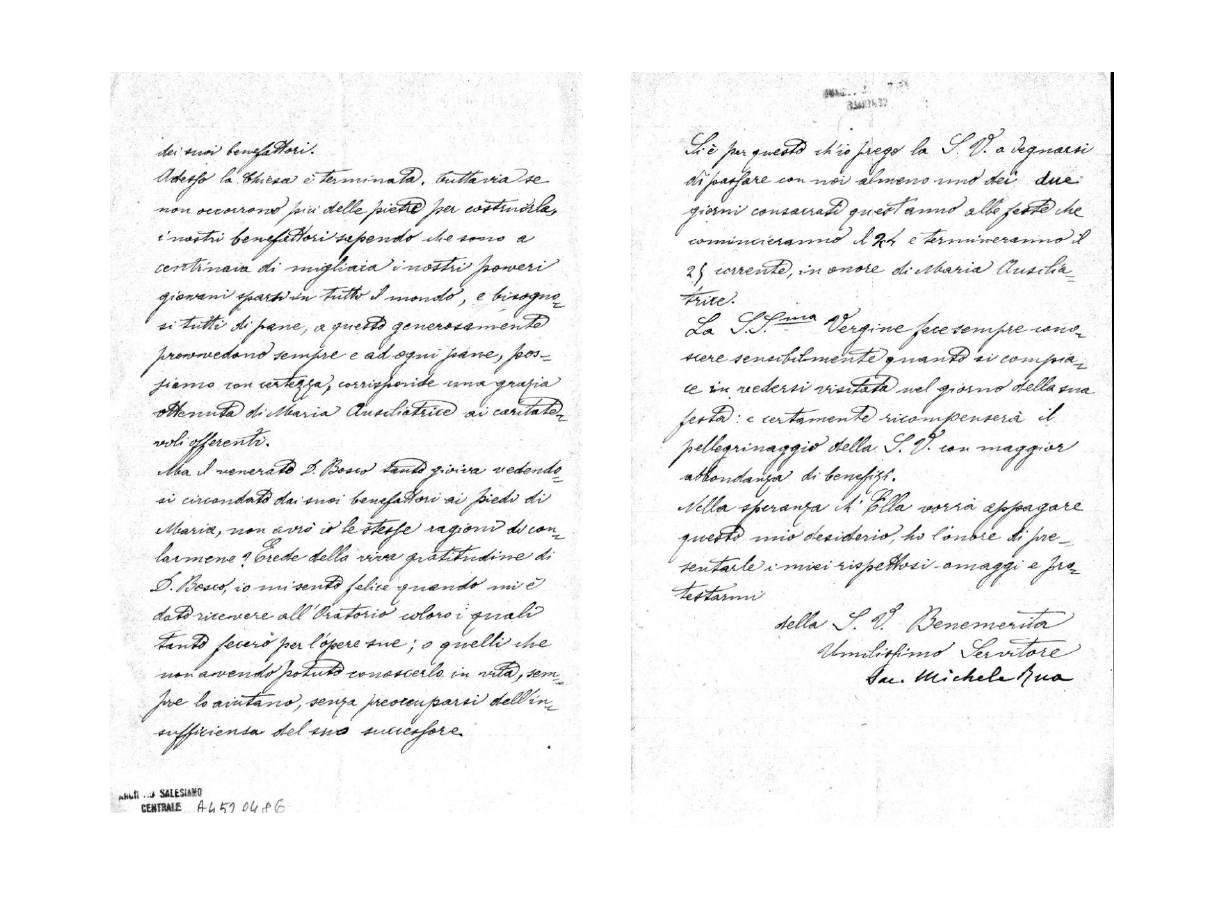 dei suoi benefattori.
Adesso la Chiesa è terminata. tuttavia se
non occorrono più delle pietre per costruirla,
i nostri benefattori sapendo che sono a
centinaia di migliaia i nostri poveri
giovani sparsi in tutto il mondo, e bisogno=
si tutti di pane, a questo generosamente
provvedono sempre e ad ogni pane, pos=
siamo con certezza, corrisponde una grazia
ottenuta di Maria Ausiliatrice ai caritate=
voli offerenti.
Ma il venerato D. Bosco tanto gioiva vedendo=
si circondato dai suoi benefattori ai piedi di
Maria, non avrò io le stesse ragioni di con=
larmene? Erede della viva gratitudine di
D. Bosco, io mi sento felice quando mi è
dato ricevere all'Oratorio coloro i quali
tanto fecero per l'opere sue; o quelli che
non avendo potuto conoscerlo in vita, sem=
pre lo aiutano, senza preoccuparsi dell'in=
sufficiensa del suo successore.
SALESIANO
CENTRALE A4520486
Si è per questo ch'io prego la S. V. a degnarsi
di passare con noi almeno uno dei due
giorni consacrati quest'anno alle feste che
comincieranno il 24 e termineranno il
25 corrente, in onore di Maria Ausilia=
trice.
La S.S.ma Vergine fece sempre cono=
scere sensibilmente quanto si compia=
ce in vedersi visitata nel giorno della sua
festa: e certamente ricompenserà il
pellegrinaggio della S. V. con maggior
abbondanza di benefizi.
Nella speranza ch'Ella vorrà appagare
questo mio desiderio, ho l'onore di pre=
sentarle i miei rispettosi omaggi e pro=
testarmi
della S. V. Benemerita
Umilissimo Servitore
Sac. Michele Rua